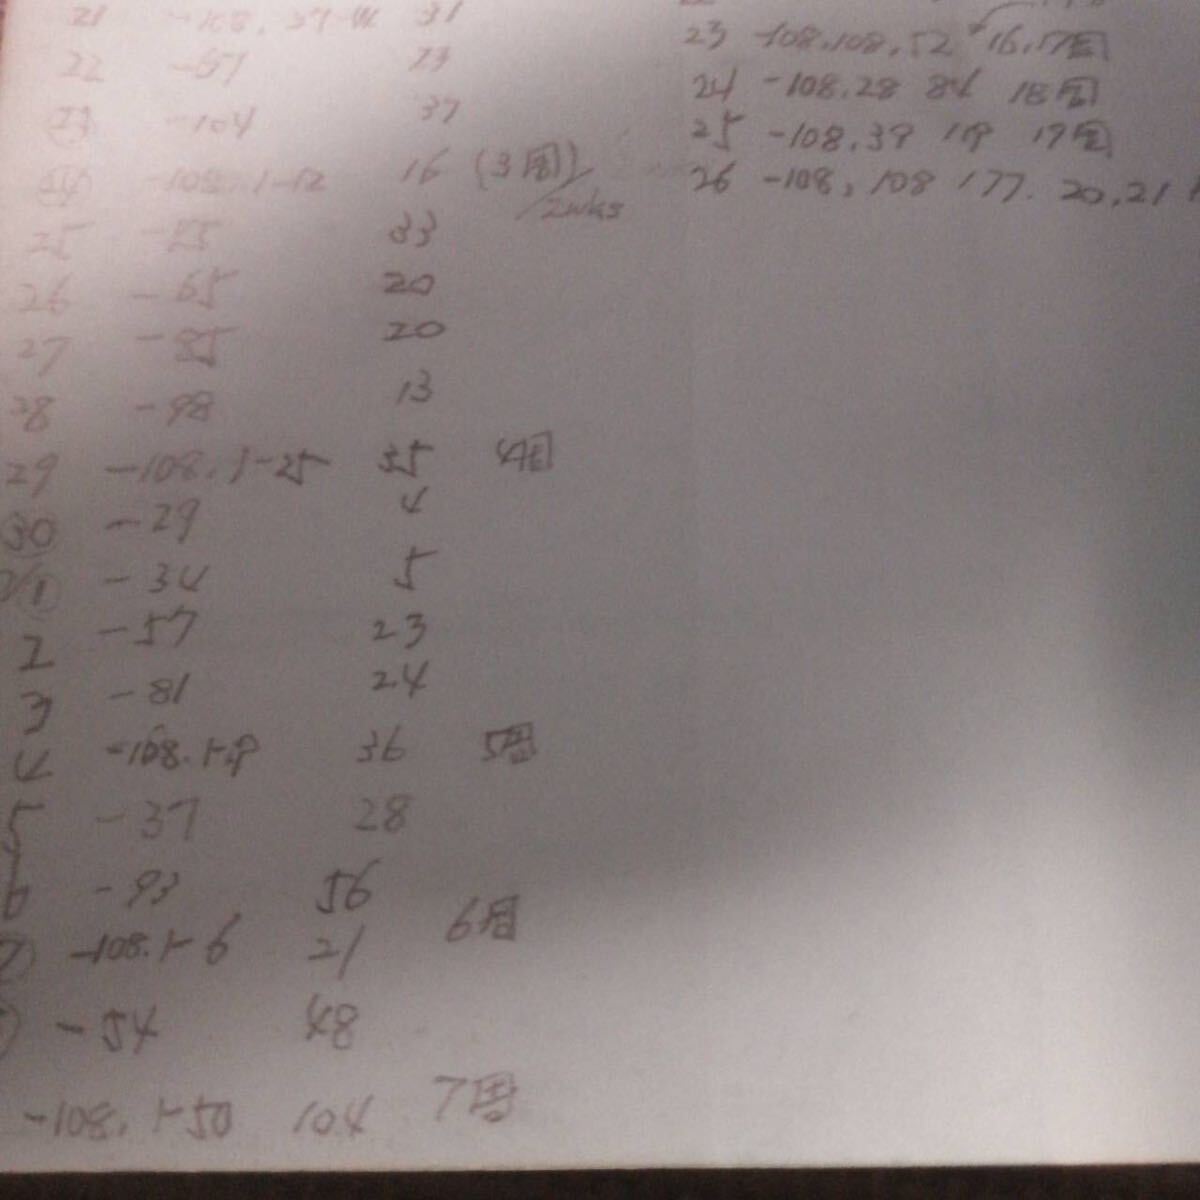 21 -108. 31
22 -67 73
23 -104 37
24 -108.1-12 16 (3周)
/2wks
25 -25 33
26 -65 20
27 -85 20
28 -98 13
29 -108.1-25 35 4周
30 -29 4
1 -34 5
2 -57 23
3 -81 24
4 -108.1-9 36 5周
5 -37 28
6 -93 56
7 -108.1-6 21 6周
-54 48
-108.1-50 104 7周
23 -108.108.52 16.17周
24 -108.28 84 18周
25 -108.39 119 19周
26 -108, 108 177. 20,21